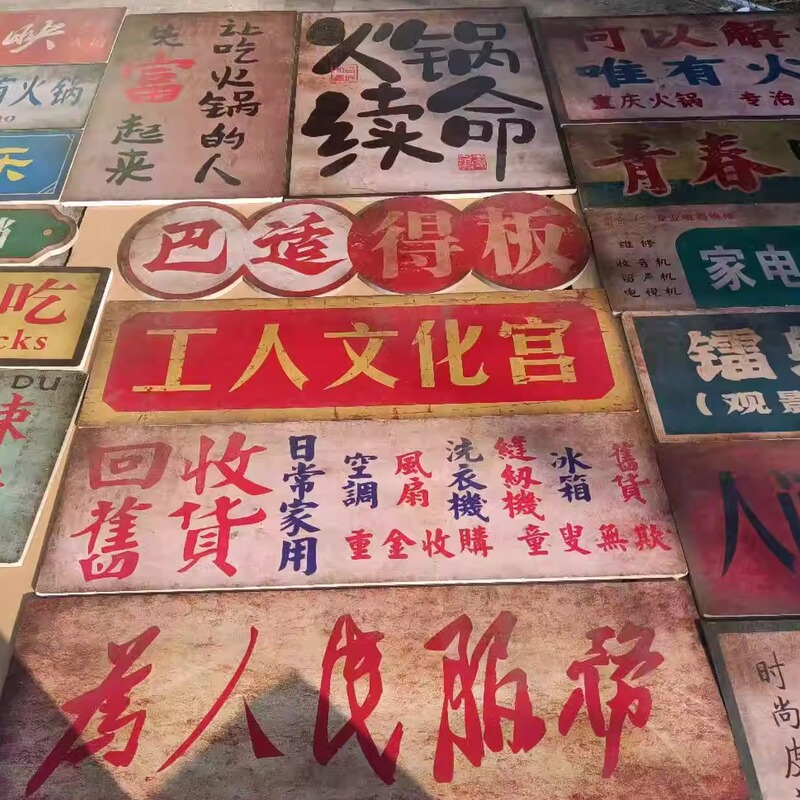 有火锅
天
吃
cks
DU
让吃火锅的人
先富起来
火锅
续命
何以解
唯有火
重庆火锅 专治
青春
巴适得板
维修
收音机
留声机
电视机
家电
工人文化宫
镭射
(观景
回收
舊貨
日常家用
空調
風扇
洗衣機
縫紉機
冰箱
舊貨
重金收購 童叟無欺
人
為人民服務
时尚